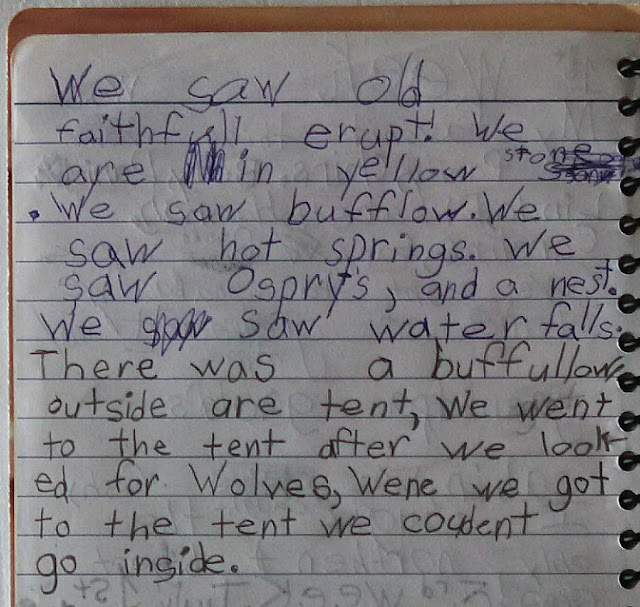 We saw old
faithfull erupt. We
are in yellow stone
. We saw bufflow. We
saw hot springs. We
saw Ospry's, and a nest.
We saw water falls.
There was a buffullow
outside are tent, We went
to the tent after we look-
ed for Wolves, Wene we got
to the tent we coudent
go inside.